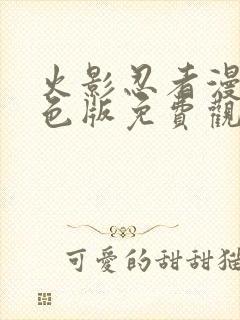 火影忍者漫
色版免費觀
可愛的甜甜猫